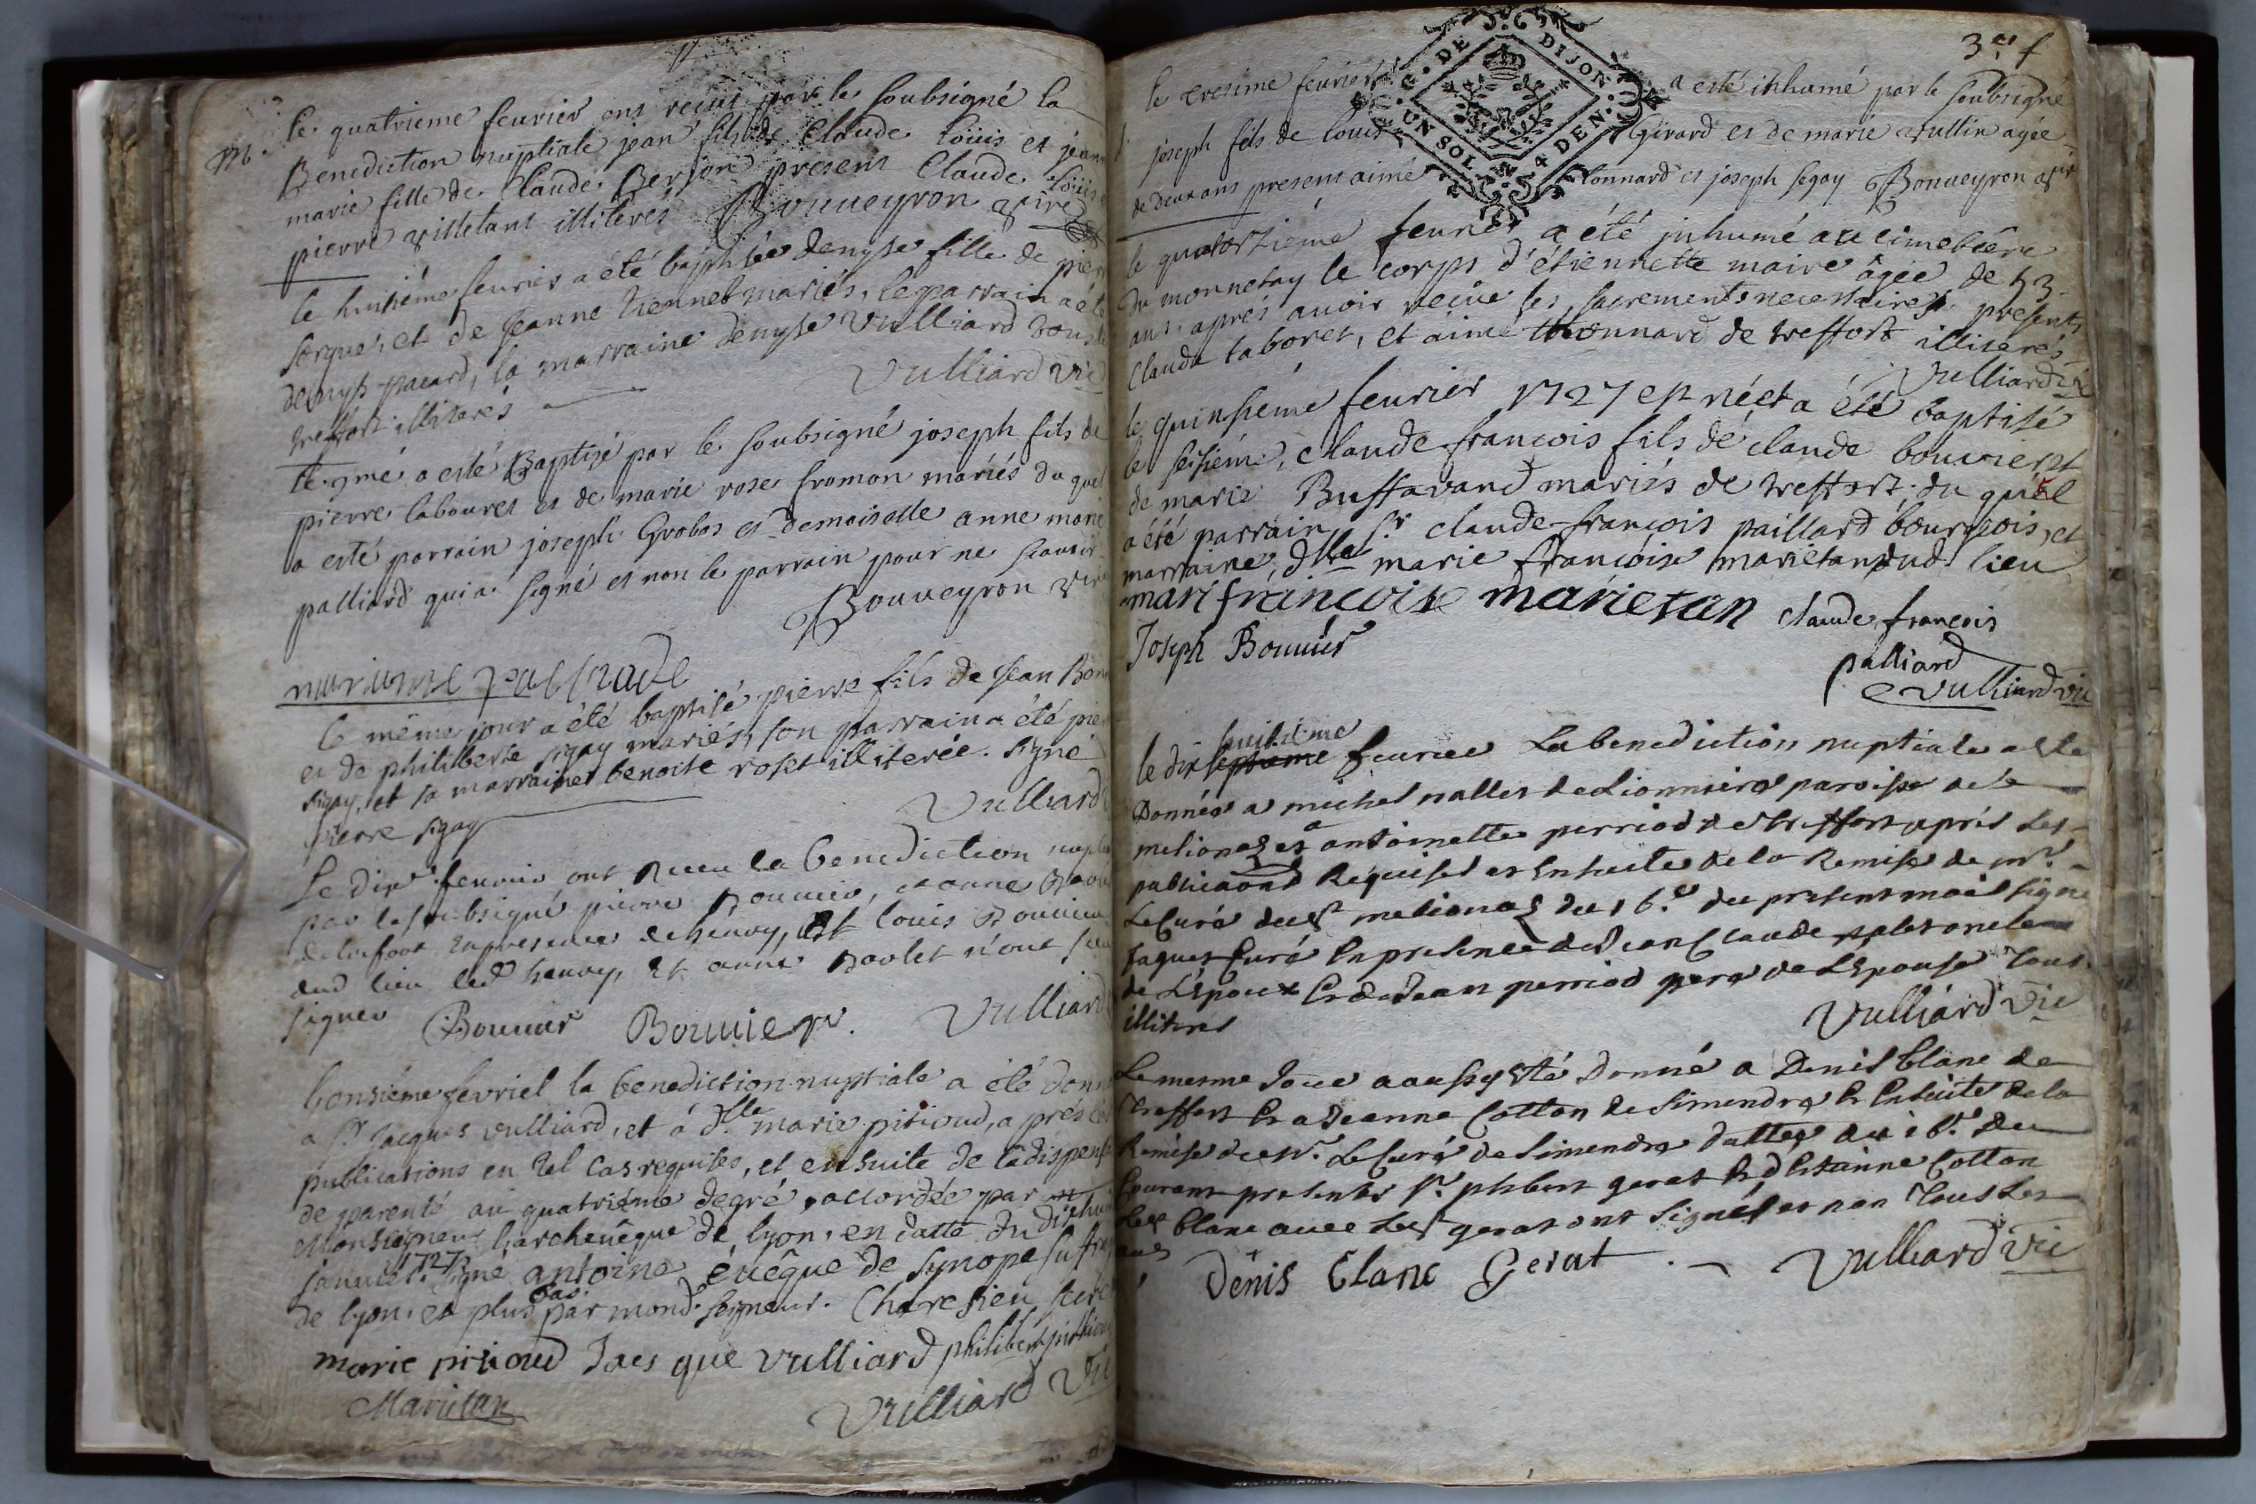 M. le quatrieme feurier ont recus par le soubsigné la
Benediction nuptiale jean fils de Claude loüis et jeanne
marie fille de Claude Berjon present Claude loüis
pierre villetant illiterés Bouueyron vire
le huitiéme feurier a été baptisée denyse fille de
et de Jeanne mariés, le parrain a été
denys pacard, la marraine denyse Vulliard tous de
treffort illiterés
Vulliard Vic
le 9me a esté Baptizé par le soubsigné joseph fils de
pierre labouret et de marie rose fromon mariés du quel
a esté parrain joseph Grobas et demoiselle anne marie
palliard qui a signé et non le parrain pour ne scauoir
Bouueyron vire
le même jour a été baptisé pierre fils de Jean
et de philiberte sigay mariés, son parrain a été
sigay, et sa marraine benoite roset illiterée. signé
pierre sigay
Vulliard
Le dixe feurier ont Receu la benediction
par le soubsigné pierre Bouuier, et anne
de treffort En presence de heuvy, et louis Bouuier
dud lieu led heuvy, et anne n'ont
signer
Bouuier Bouuier. Vulliard
l'onsiéme fevriel la benediction nuptiale a été
a Sr. Jacques vulliard, et á dlle marie pitioud, a prés
publications en tel cas requises, et ensuite de la dispense
de parenté au quatriéme degré, accordée par
Monseigneur l'archeuêque de lyon, en datte du
januier 1727, signé antoine éuêque de Synope
de lyon, et plus bas par mond. seigneur.
marie pitioud Jacs que vulliard philibert
Marietan
Vulliard Vic
3e f
le tresime feurier a esté inhumé par le soubsigné
joseph fils de louis Girard et de marie vullin agée
de deux ans present aimé tonnard et joseph segay Bouueyron vire
le quatorziéme feurier a été inhumé au cimetiére
du monnetay le corps d'étiennette maire âgée de 53
ans, aprés auoir reçüe les sacrements necessaires, presents
Claude laboret, et aimé thonnard de treffort illiterés
Vulliard vic
le quinsiéme feurier 1727 est né et a été baptisé
le seisiéme, claude françois fils de claude bouuier et
de marie Buffavand mariés de treffort; du quel
a été parrain Sr. claude-françois paillard bourgeois, et
marraine, dlle marie françoise marietan dud. lieu
mari francoise marietan claude françois
palliard
Joseph Bouuier
Vulliard vic
huitieme
le dix septieme feurier La benediction nuptiale a este
Donnée a michel nallet de Lionniere paroisse de
melionas et a antoinette perriod de treffort apris les
publications Requises et Ensuite de la Remise de mr.
Le Curé dud melionas du 16.e du present mois signé
Jaquet Curé En presence de Jean Claude nallet oncle
de L'Epoux Et de Jean perriod pere de L'Epouse tous
illiteres
Vulliard Vic
Le mesme Jour a aussy Esté Donné a Denis blanc de
treffort Et a Jeanne Cotton de Simendre Et Ensuite de la
Remise de mr. Le Curé de Simendre datté du 16.e du
Courant presents Sr. phibert gerat Et d Estienne Cotton
Led. blanc auec Led gerat ont signé et non tous les
aus
Denis blanc Gerat Vulliard Vic
G. DE DIJON. UN SOL 4 DEN.